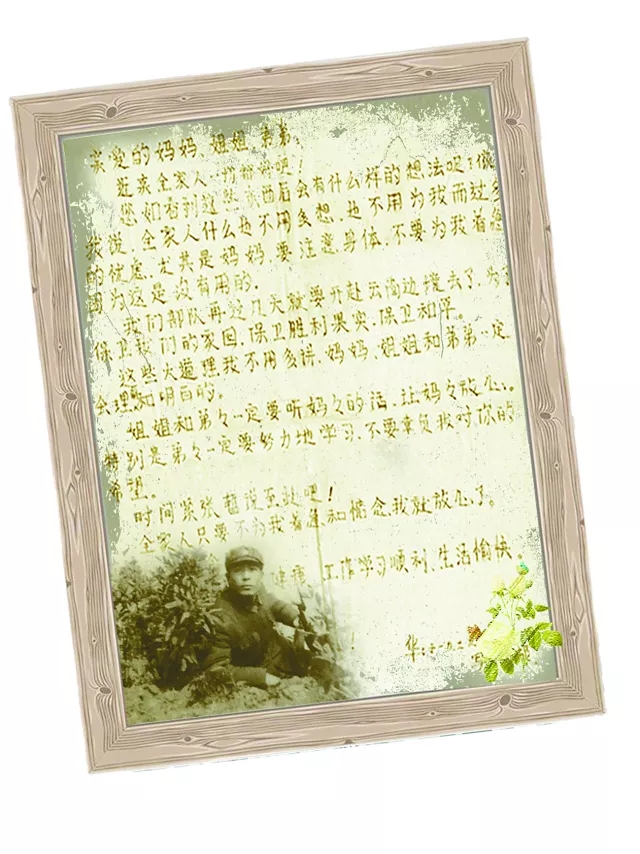 亲爱的妈妈、姐姐、弟弟。
近来全家人一切都好吧！
您如看到这些东西后会有什么样的想法呢？像
我说，全家人什么也不用多想，也不用为我而过多
的忧虑，尤其是妈妈，要注意身体，不要为我着急
因为这是没有用的.
我们部队再过几天就要开赴云南边境去了，为了
保卫我们的家园，保卫胜利果实，保卫和平。
这些大道理我不用多讲，妈妈、姐姐和弟弟一定
会理 和明白的。
姐姐和弟々一定要听妈々的话，让妈々放心。
特别是弟々一定要努力地学习，不要辜负我对你的
希望。
时间紧张 说至此吧！
全家人只要不为我着急和惦念，我就放心了。
健康、工作学习顺利、生活愉快
！
华